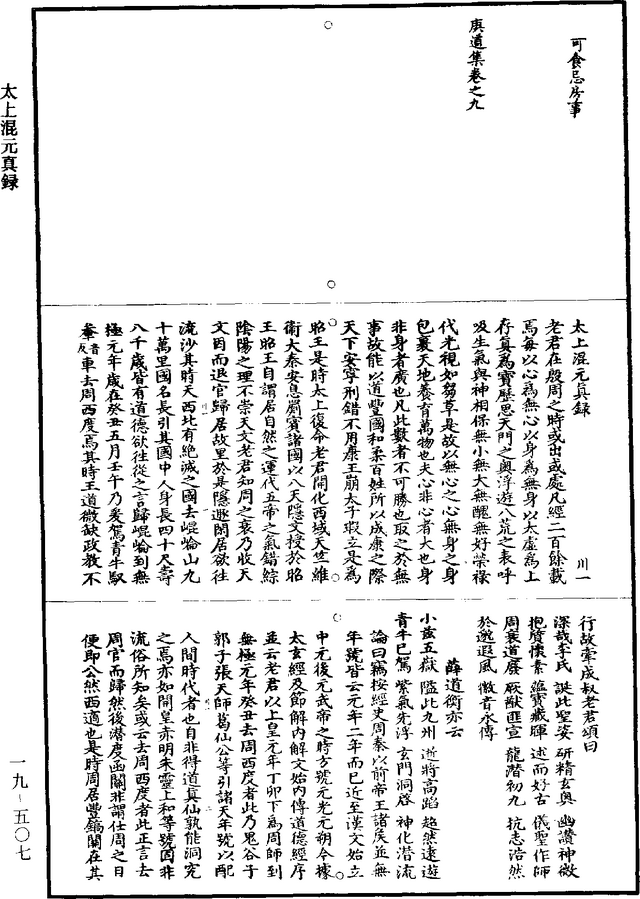 可食忌房事
庚道集卷之九
太上混元真録
一九-五〇七
太上混元真録 川一
老君在殷周之時或出或處凡經二百餘載
焉每以心為無心以身為無身以太虚為上
存真為寶歷思天門之奥浮遊八荒之表呼
吸生氣與神相保無小無大無醜無好榮祿
代光視如芻草是故以無心之心無身之身
包裹天地養育萬物也夫心非心者大也身
非身者廣也凡此數者不可勝也取之於無
事故能以道豐國和柔百姓所以成康之際
天下安寧刑錯不用康王崩太子瑕立是為
昭王是時太上復命老君開化西域天竺維
衛大秦安息罽賓諸國以八天隱文授於昭
王昭王自謂居自然之運代五帝之氣錯綜
陰陽之理不崇天文老君知周之衰乃收天
文因而退官歸居故里於是隱遯閑居欲往
流沙其時天西北有絶滅之國去崐崘山九
十萬里國名長引其國中人身長四十尺壽
八千歲皆有道德欲往從之言歸崐崘到無
極元年歲在癸丑五月壬午乃爰駕青牛馭
車去周西度焉其時王道微缺政教不
行故韋成叔老君頌曰
深哉李氏 誕此聖姿 研精玄奥 幽讃神微
抱質懷素 藴寶藏暉 述而好古 儀聖作師
周衰道廢 厥猷匪宣 龍潜初九 抗志浩然
於邈遐風 徽音永傳
薛道衡亦云
小兹五嶽 隘此九州 逝將高蹈 超然遠遊
青牛已駕 紫氣先浮 玄門洞啓 神化潜流
論曰竊按經史周秦以前帝王諸侯並無
年號皆云元年二年而已近至漢文始立
中元後元武帝之時方號元光元朔今據
太玄經及節解内解文始内傳道德經序
並云老君以上皇元年丁卯下為周師到
無極元年癸丑去周西度者此乃鬼谷子
郭子張天師葛仙公等引諸天年號以配
人間時代者也自非得道真仙孰能洞究
之焉亦如開皇赤明朱靈上和等號固非
流俗所知矣或云去周西度者此正言去
周官而歸然後潜度函關非謂仕周之日
便即公然西適也是時周居豐鎬關在其